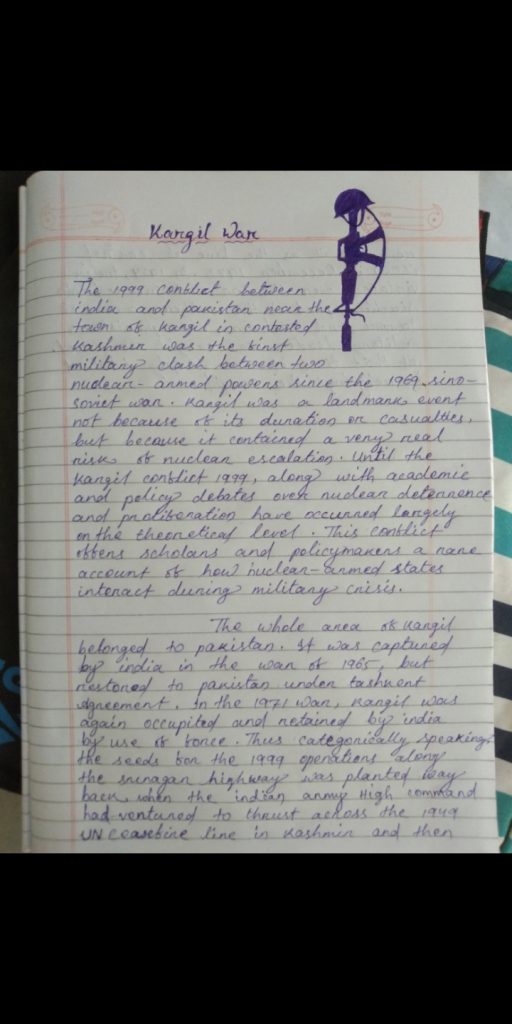 Kargil War
The 1999 conflict between
india and pakistan near the
town of Kangil in contested
Kashmir was the first
military clash between two
nuclear-armed powers since the 1969 sino-
soviet war. Kargil was a landmark event
not because of its duration or casualties,
but because it contained a very real
risk of nuclear escalation. Until the
Kargil conflict 1999, along with academic
and policy debates over nuclear deterrence
and proliferation have occurred largely
on the theoretical level. This conflict
offers scholars and policymakers a rare
account of how nuclear-armed states
interact during military crisis.
The whole area of Kargil
belonged to pakistan. It was captured
by india in the war of 1965, but
restored to pakistan under tashkent
Agreement. In the 1971 war, Kargil was
again occupited and retained by india
by use of force. Thus categorically speaking,
the seeds for the 1999 operations along
the srinagar highway was planted way
back when the indian army High command
had ventured to thrust across the 1949
UN ceasefire line in Kashmir and then